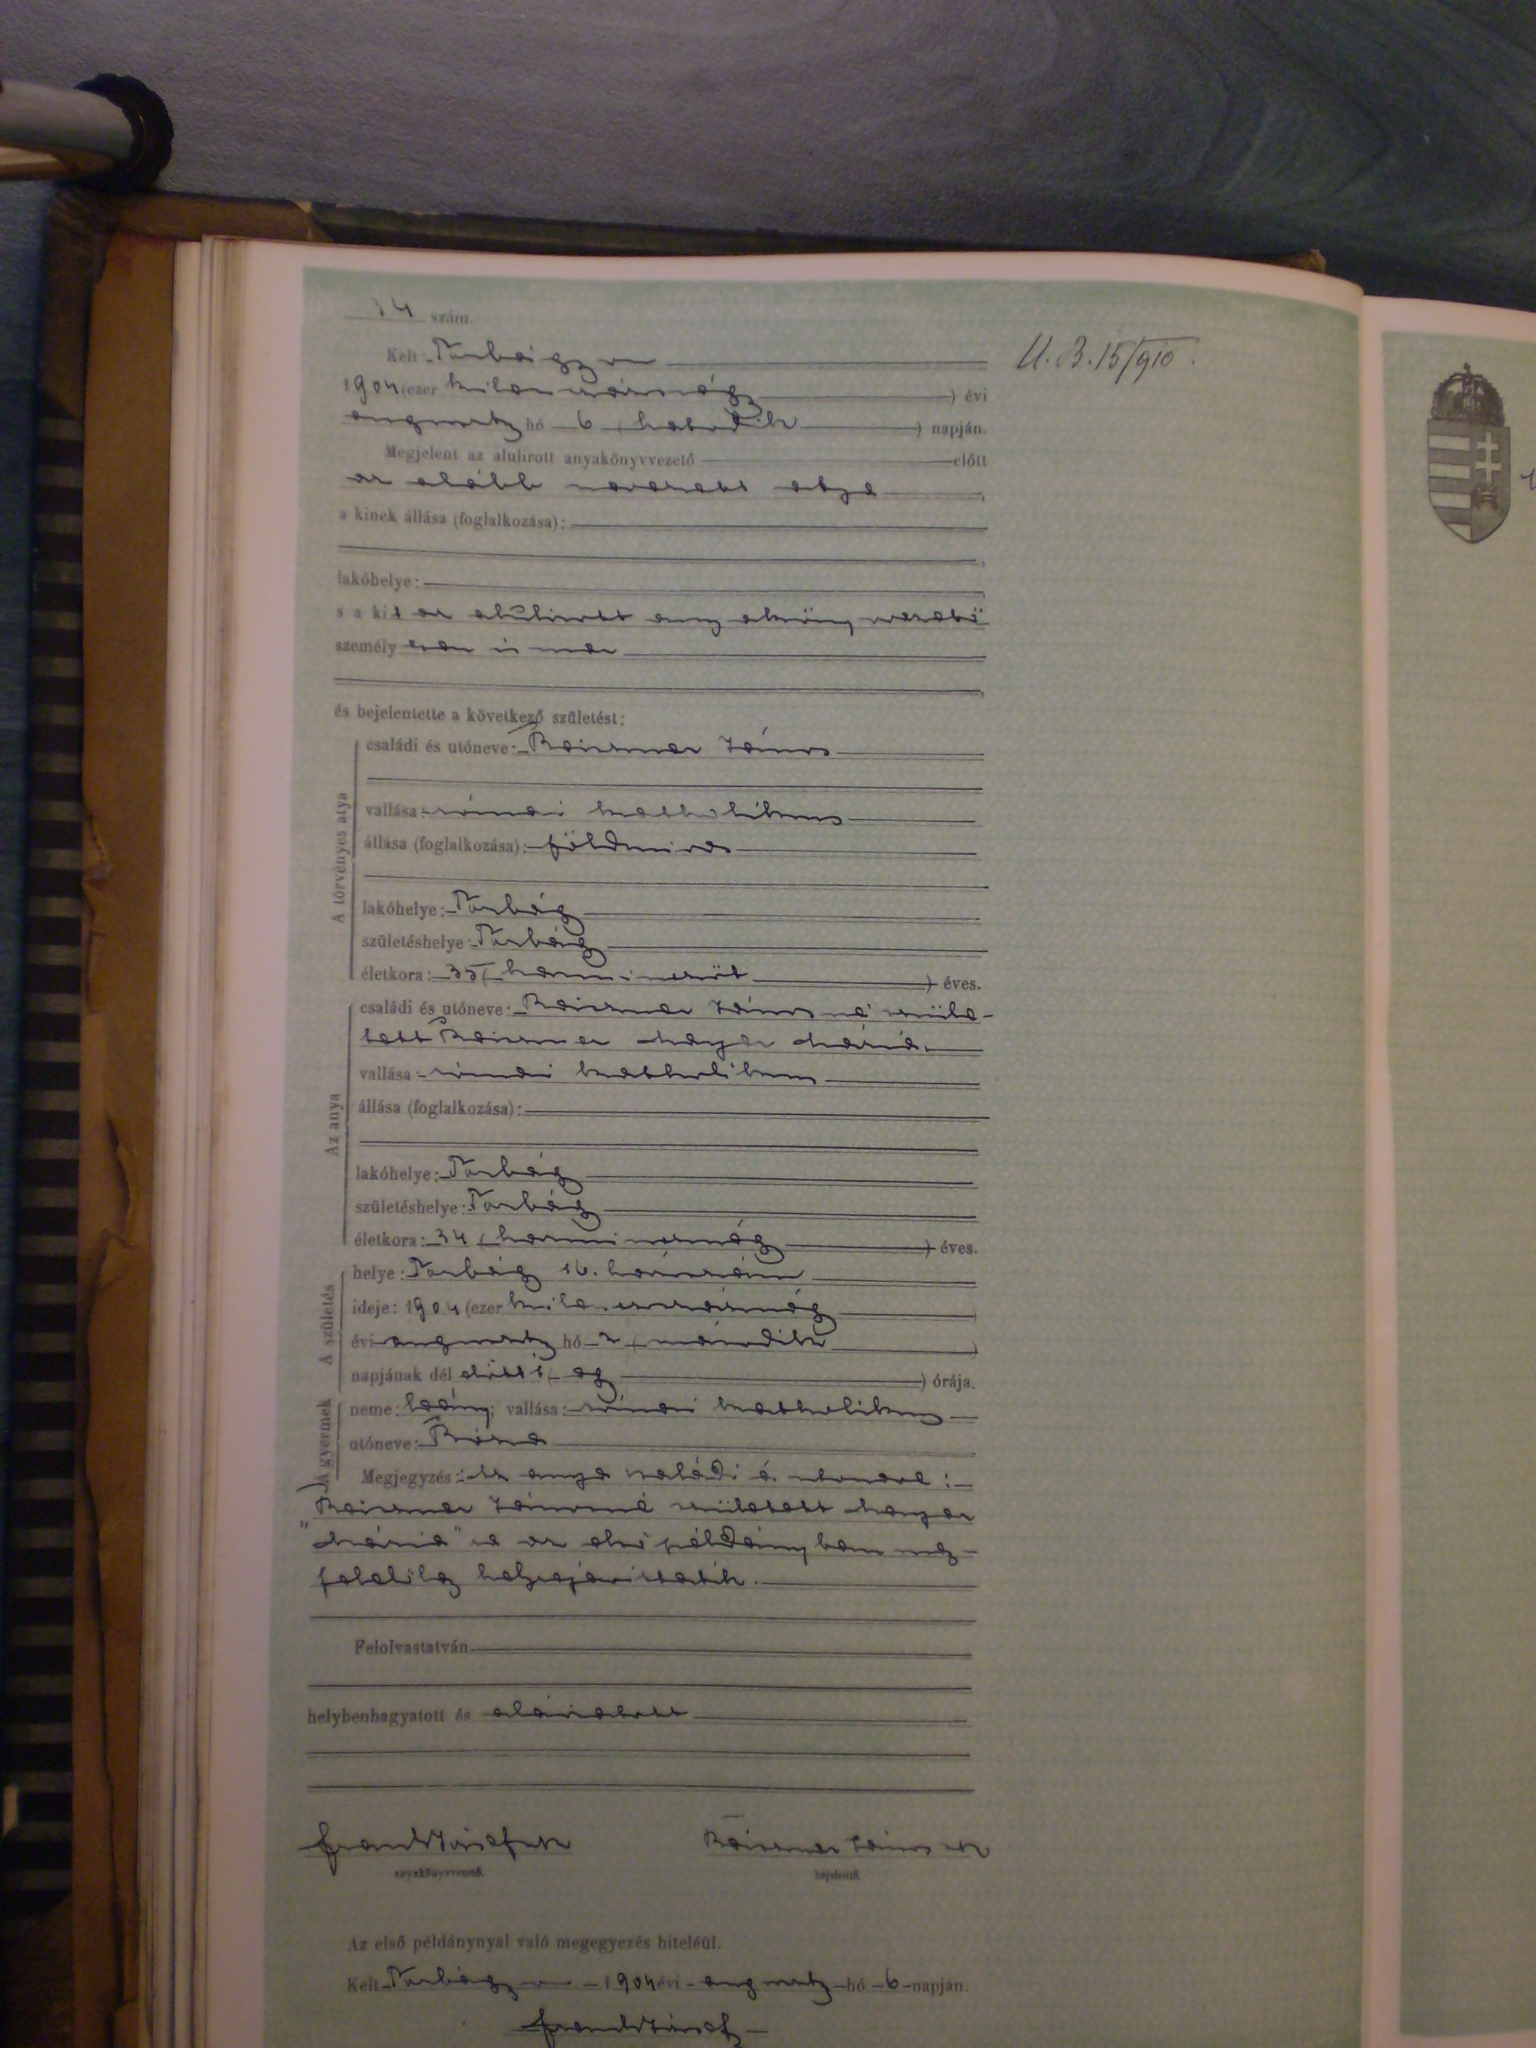 34 szám.
Kelt: Torbágyon
U. B. 15/910.
1904 (ezer kilenczszáznégy ) évi
augusztus hó 6 (hatodik ) napján.
Megjelent az alulirott anyakönyvvezető előtt
az alább nevezett atya ,
a kinek állása (foglalkozása):
lakóhelye:
s a kit az alulirott anyakönyvvezető
személyesen ismer
és bejelentette a következő születést:
A törvényes atya
családi és utóneve: Reiszner János
vallása: római katholikus
állása (foglalkozása): földmives
lakóhelye: Torbágy
születéshelye: Torbágy
életkora: 35 (harminczöt ) éves.
Az anya
családi és utóneve: Reiszner Jánosné szüle-
tett Reiszner Mayer Mária.
vallása: római katholikus
állása (foglalkozása):
lakóhelye: Torbágy
születéshelye: Torbágy
életkora: 34 (harmincznégy ) éves.
A születés
helye: Torbágy 16. házszám
ideje: 1904 (ezer kilenczszáznégy )
évi augusztus hó 2 (második )
napjának dél előtti 1 (egy ) órája.
A gyermek
neme: leány; vallása: római katholikus
utóneve: Róza
Megjegyzés: Az anya családi és utóneve:
"Reiszner Jánosné született Mayer
Mária" az első példányban meg-
felelőleg helyreigazittatik.
Felolvastatván
helybenhagyatott és aláiratott
Frank József
Reiszner János
anyakönyvvezető.
bejelentő.
Az első példánynyal való megegyezés hiteléül.
Kelt Torbágyon 1904 évi augusztus hó 6 napján.
Frank József